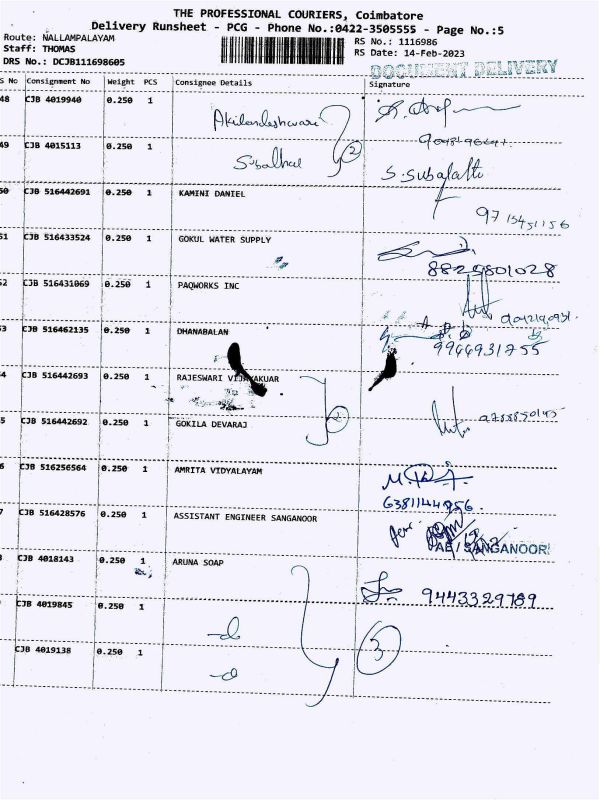 THE PROFESSIONAL COURIERS, Coimbatore
Delivery Runsheet - PCG - Phone No.:0422-3505555 - Page No.:5
Route: NALLAMPALAYAM
RS No.: 1116986
Staff: THOMAS
RS Date: 14-Feb-2023
DRS No.: DCJB111698605
DOCUMENT DELIVERY
S No Consignment No Weight PCS Consignee Details Signature
48 CJB 4019940 0.250 1 Akilandeshwari
49 CJB 4015113 0.250 1 2 S.Subalatti
50 CJB 516442691 0.250 1 KAMINI DANIEL
51 CJB 516433524 0.250 1 GOKUL WATER SUPPLY 8829801028
52 CJB 516431069 0.250 1 PAQWORKS INC
53 CJB 516462135 0.250 1 DHANABALAN 9966931755
54 CJB 516442693 0.250 1 RAJESWARI VIJAYAKUAR
5 CJB 516442692 0.250 1 GOKILA DEVARAJ 2
6 CJB 516256564 0.250 1 AMRITA VIDYALAYAM
6381144956.
7 CJB 516428576 0.250 1 ASSISTANT ENGINEER SANGANOOR
AE / SANGANOOR
CJB 4018143 0.250 1 ARUNA SOAP
9443329789
CJB 4019845 0.250 1 -d
3
CJB 4019138 0.250 1 -d